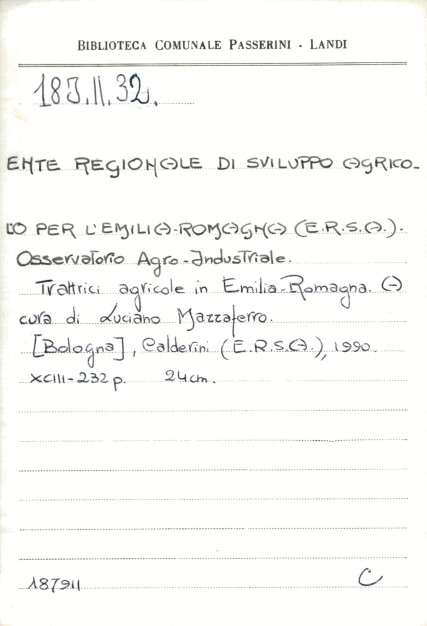 BIBLIOTECA COMUNALE PASSERINI - LANDI
18J.II.32.
ENTE REGIONALE DI SVILUPPO AGRICO-
LO PER L'EMILIA-ROMAGNA (E.R.S.A.).
Osservatorio Agro-Industriale.
Trattrici agricole in Emilia-Romagna. A
cura di Luciano Mazzaferro.
[Bologna], Calderini (E.R.S.A.), 1990.
XCIII-232 p. 24 cm.
187911 C